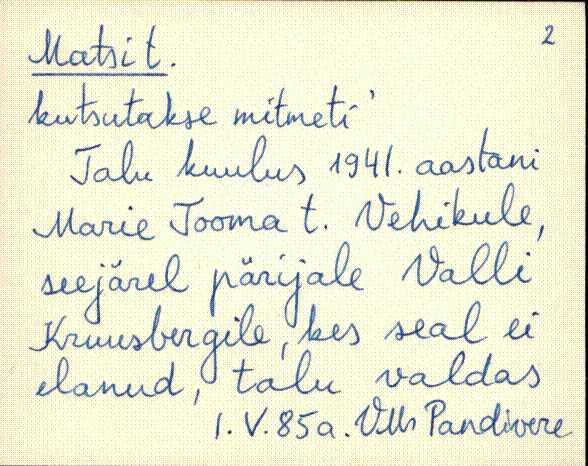 2
Matsi t.
kutsutakse mitmeti'
Talu kuulus 1941. aastani
Marie Jooma t. Vehikule,
seejärel pärijale Valli
Kruusbergile, kes seal ei
elanud, talu valdas
1. V. 85a. Pandivere